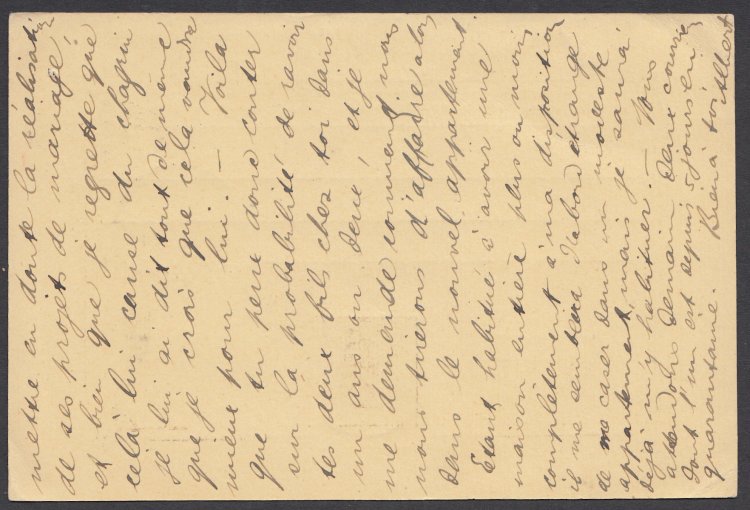 mettre en doute la réalisation
de ses projets de mariage,
et bien que je regrette que
celà lui cause du chagrin
je lui ai dit tout de même
que je crois que cela vaudra
mieux pour lui. — Voilà
que tu peux donc conter
sur la probabilité de ravoir
tes deux fils chez toi dans
un ans ou deux, et je
me demande comment nous
nous tirerons d'affaire alors
dans le nouvel appartement
Étant habitué à avoir une
maison entière plus ou moins
complètement à ma disposition
il me semblera d'abord étrange
de me caser dans un modeste
appartement, mais je saurai
déjà m'y habituer. — Nous
attendons demain deux courriers
dont l'un est depuis 5 jours en
quarantaine. Bien à toi Albert